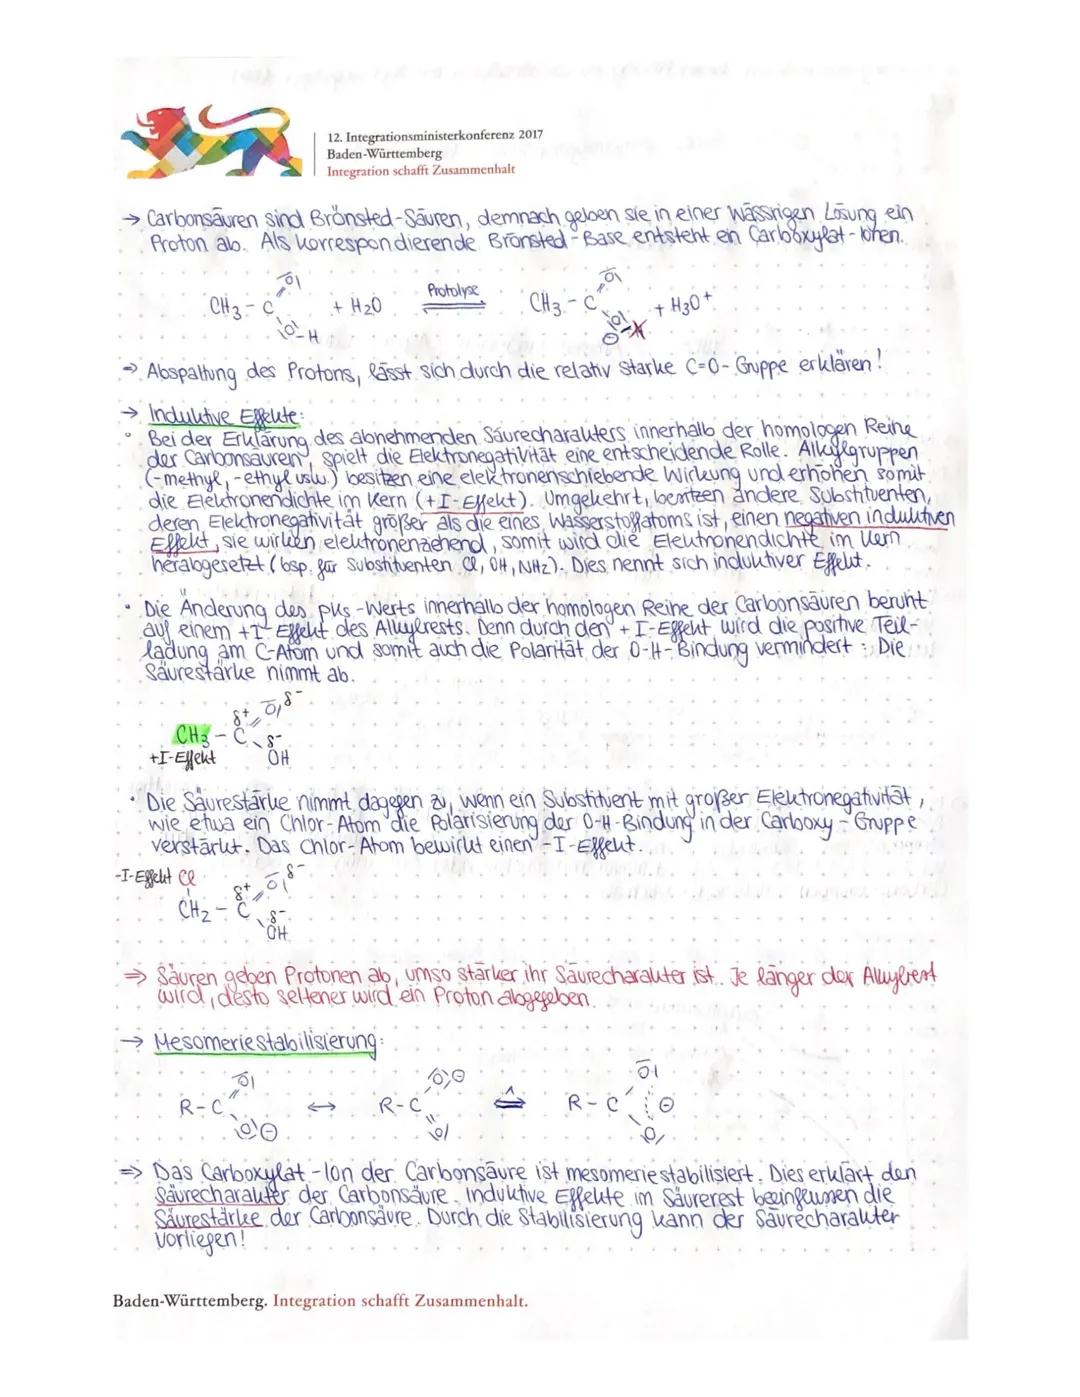 12. Integrationsministerkonferenz 2017
Baden-Württemberg
Integration schafft Zusammenhalt
→ Carbonsäuren sind Brönsted-Säuren, demnach geben sie in einer wässrigen Lösung ein
Proton ab. Als korrespondierende Brönsted-Base entsteht ein Carboxylat-Ionen.
CH3 - C O O - H + H2O Protolyse CH3 - C O O ⊖ H + H3O+
→ Abspaltung des Protons, lässt sich durch die relativ starke C=O-Gruppe erklären!
→ Induktive Effekte:
° Bei der Erklärung des abnehmenden Säurecharakters innerhalb der homologen Reihe
der Carbonsäuren, spielt die Elektronegativität eine entscheidende Rolle. Alkylgruppen
(-methyl, -ethyl usw.) besitzen eine elektronenschiebende Wirkung und erhöhen somit
die Elektronendichte im Kern (+I-Effekt). Umgekehrt, besitzen andere Substituenten,
deren Elektronegativität größer als die eines Wasserstoffatoms ist, einen negativen induktiven
Effekt, sie wirken elektronenziehend, somit wird die Elektronendichte im Kern
herabgesetzt (bsp. für Substituenten Cl, OH, NH2). Dies nennt sich induktiver Effekt.
• Die Änderung des pks-Werts innerhalb der homologen Reihe der Carbonsäuren beruht
auf einem +I-Effekt des Alkylrests. Denn durch den +I-Effekt wird die positive Teil-
ladung am C-Atom und somit auch die Polarität der O-H-Bindung vermindert: Die
Säurestärke nimmt ab.
δ+ O δ-
CH3 - C δ-
+I-Effekt OH
• Die Säurestärke nimmt dagegen zu, wenn ein Substituent mit großer Elektronegativität,
wie etwa ein Chlor-Atom die Polarisierung der O-H-Bindung in der Carboxy-Gruppe
verstärkt. Das Chlor-Atom bewirkt einen -I-Effekt.
-I-Effekt Cl δ+ O δ-
CH2 - C δ-
OH
⇒ Säuren geben Protonen ab, umso stärker ihr Säurecharakter ist. Je länger der Alkylrest
wird, desto seltener wird ein Proton abgegeben.
→ Mesomeriestabilisierung:
O O ⊖ O
R - C ↔ R - C ≙ R - C ⊖
O ⊖ O O
⇒ Das Carboxylat-Ion der Carbonsäure ist mesomeriestabilisiert. Dies erklärt den
Säurecharakter der Carbonsäure. Induktive Effekte im Säurerest beeinflussen die
Säurestärke der Carbonsäure. Durch die Stabilisierung kann der Säurecharakter
vorliegen!
Baden-Württemberg. Integration schafft Zusammenhalt.